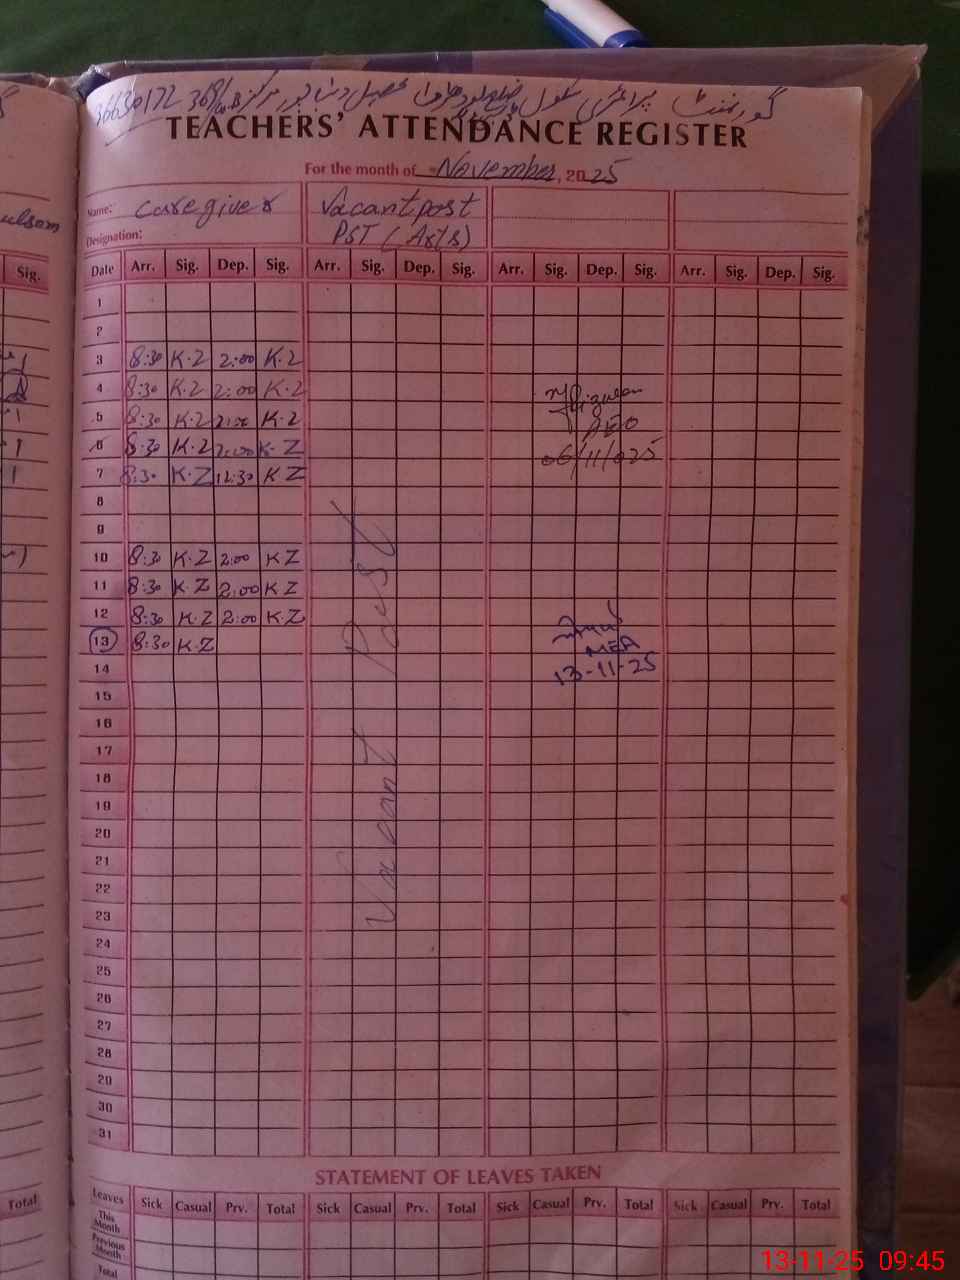 36630172 368/W.B گورنمنٹ پرائمری سکول ضلع لودھراں تحصیل دنیا پور مرکز
TEACHERS' ATTENDANCE REGISTER
For the month of November, 2025
Name: caregiver Vacant post
Designation: PST (Arts)
Sig. Date Arr. Sig. Dep. Sig. Arr. Sig. Dep. Sig. Arr. Sig. Dep. Sig. Arr. Sig. Dep. Sig.
1
2
3 8:30 K.Z 2:00 K.Z
4 8:30 K.Z 2:00 K.Z
5 8:30 K.Z 2:00 K.Z AEO
6 8:30 K.Z 2:00 K.Z 06/11/025
7 8:30 K.Z 12:30 K.Z
8
9
10 8:30 K.Z 2:00 KZ
11 8:30 K.Z 2:00 KZ
12 8:30 K.Z 2:00 K.Z
13 8:30 K.Z MEA
14 13-11-25
15
16
17
18
19
20
21
22
23
24
25
26
27
28
29
30
31
Vacant Post
STATEMENT OF LEAVES TAKEN
Total Leaves Sick Casual Prv. Total Sick Casual Prv. Total Sick Casual Prv. Total Sick Casual Prv. Total
This Month
Previous Month
Total
13-11-25 09:45